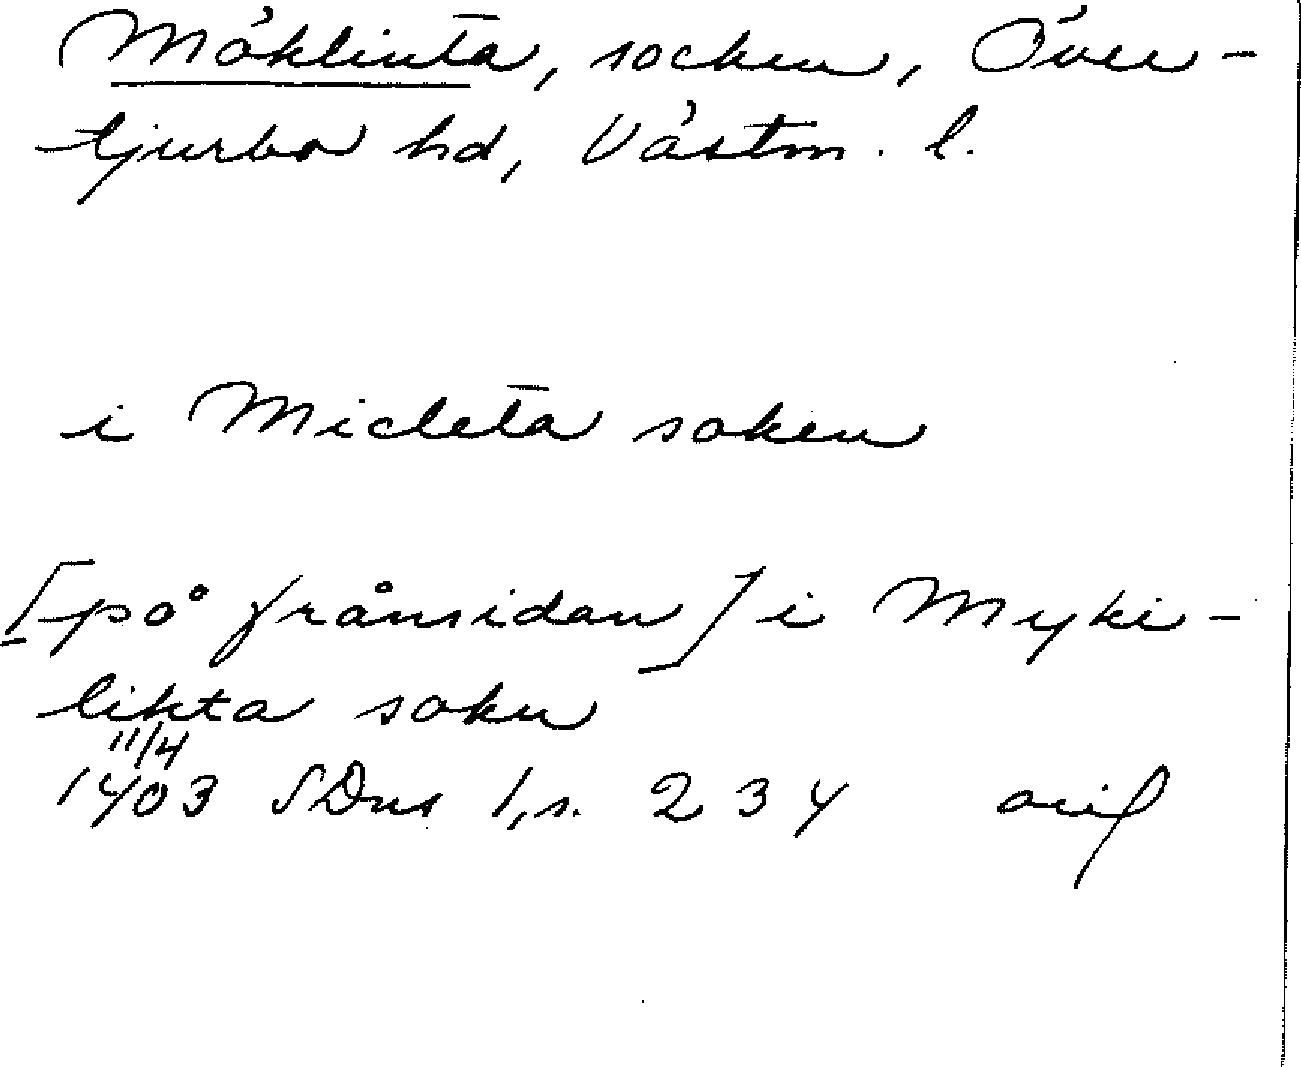 Möklinta, socken, Över-
tjurbo hd, Västm. l.
i Micleta soken
[på frånsidan] i Myki-
likta sokn
11/4
1403 SDns 1, s. 234 orig